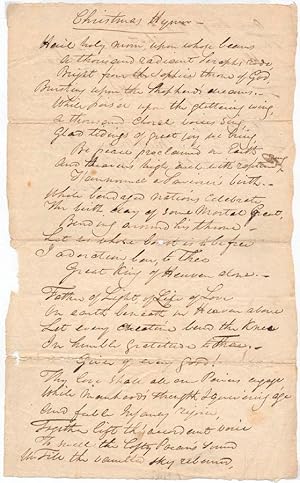 Christmas Hymn
Hail holy morn upon whose beams
A thousand radiant Seraphs
Bright from the sapphire throne of God
Bursting upon the Shepherds dreams
While poised upon the glittering wing
A thousand choral voices Sing
Glad tidings of great joy we bring
Be peace proclaimed on Earth
And Heavens high with
announced a Saviour's birth
While bondaged Nations Celebrate
The birth day of some Mortal Great
Bend around his throne
Let us whose boast is to be free
In adoration bow to Thee
Great King of Heaven alone
Father of Light, of Life of Love
On earth beneath in Heaven above
Let every creature bend the Knee
In humble gratitude to thee
Giver of every good!
Thy love shall all our Powers engage
While manhood's thought & quivering age
And feeble Infancy rejoice
Together lift th' ardent voice
To swell the lofty Paeans Sound
Untill the vaulted sky rebound